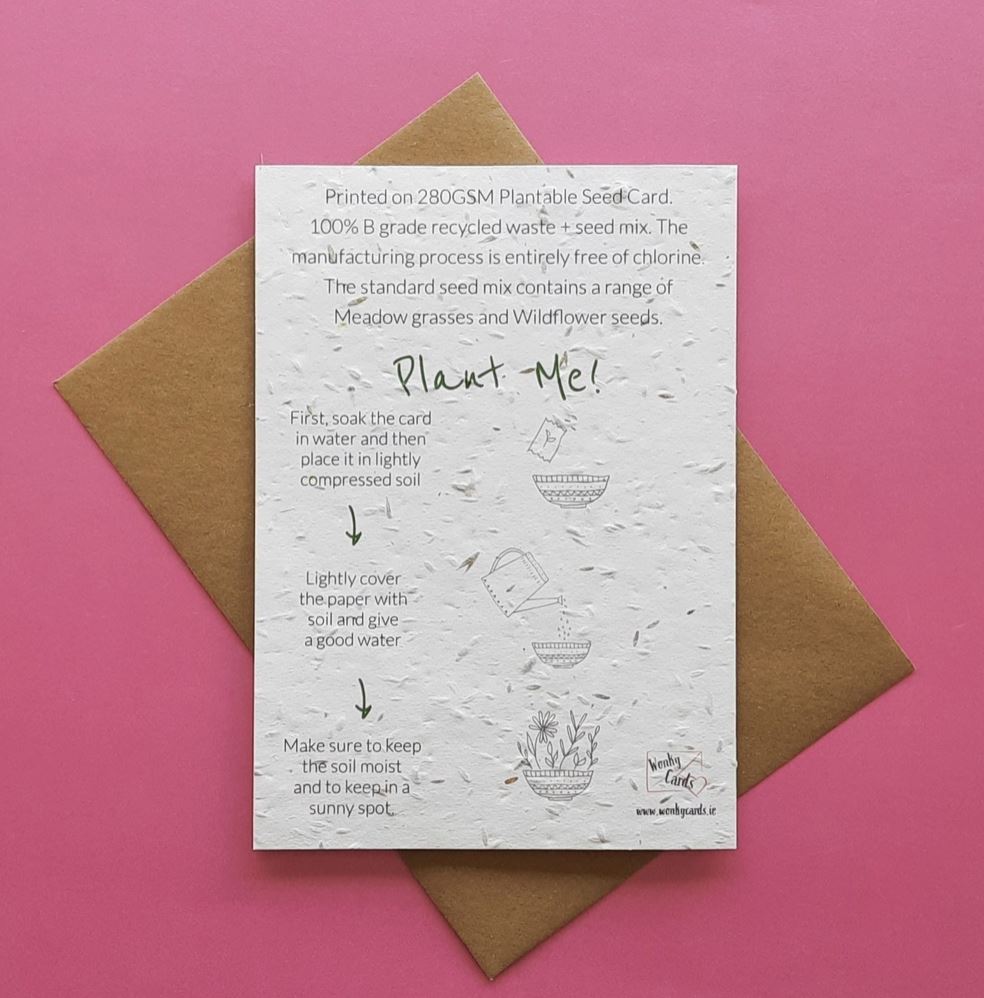 Printed on 280GSM Plantable Seed Card.
100% B grade recycled waste + seed mix. The
manufacturing process is entirely free of chlorine.
The standard seed mix contains a range of
Meadow grasses and Wildflower seeds.
Plant Me!
First, soak the card
in water and then
place it in lightly
compressed soil
Lightly cover
the paper with
soil and give
a good water
Make sure to keep
the soil moist
and to keep in a
sunny spot.
Wonky
Cards
www.wonkycards.ie